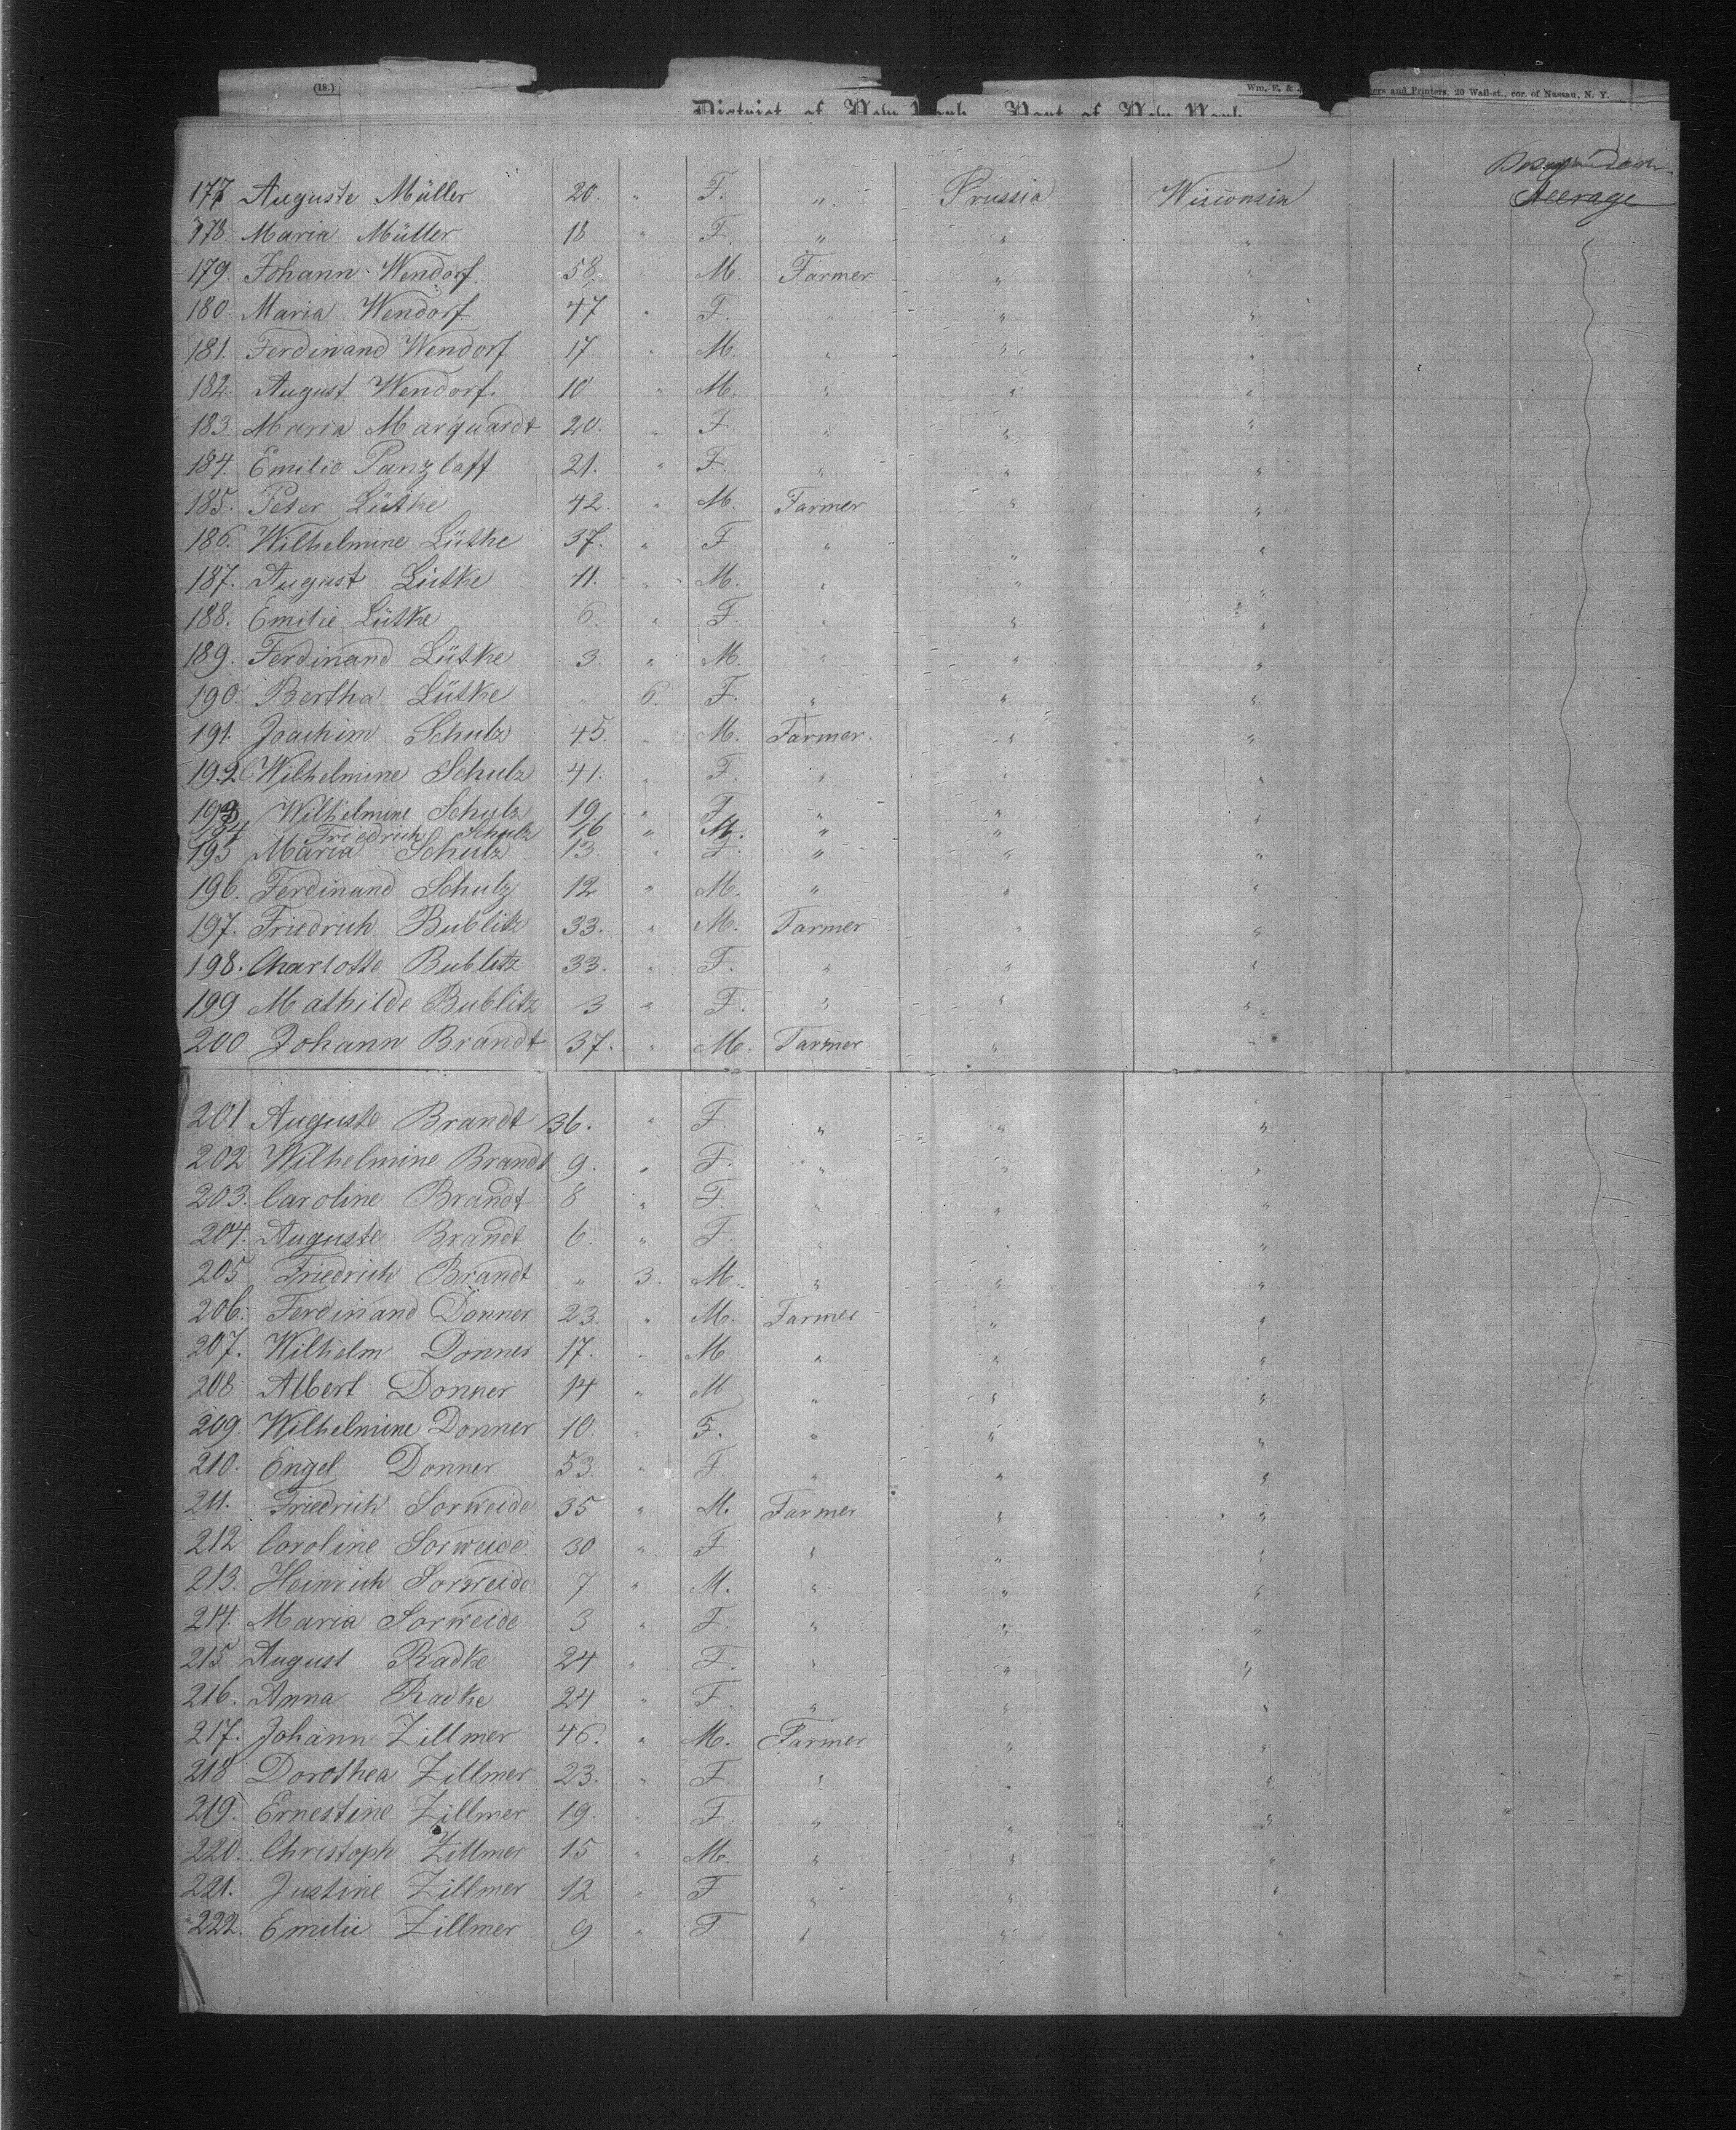 (18.)
Wm. E. & ers and Printers, 20 Wall-st., cor. of Nassau, N. Y.
District of New York Port of New York
177 Auguste Müller 20. " F. " Prussia Wisconsin Steerage
178 Maria Müller 18 " F. " " "
179. Johann Wendorf 58. " M. Farmer " "
180 Maria Wendorf 47 " F. " " "
181. Ferdinand Wendorf 17 " M. " " "
182. August Wendorf. 10 " M. " " "
183. Maria Marquardt 20. " F. " " "
184. Emilie Panzlaff 21. " F. " " "
185. Peter Lütke 42. " M. Farmer " "
186. Wilhelmine Lütke 37. " F " " "
187. August Lütke 11. " M. " " "
188. Emilie Lütke 6. " F. " " "
189. Ferdinand Lütke 3. " M. " " "
190. Bertha Lütke " 6. F. " " "
191. Joachim Schulz 45. " M. Farmer. " "
192 Wilhelmine Schulz 41. " F. " " "
193 Wilhelmine Schulz 19. " F. " " "
194 Friedrich Schulz 16 " M. " "
195 Maria Schulz 13. " F. " " "
196. Ferdinand Schulz 12 " M. " " "
197. Friedrich Bublitz 33. " M. Farmer " "
198. Charlotte Bublitz 33. " F. " " "
199 Mathilde Bublitz 3 " F. " " "
200 Johann Brandt 37. " M. Farmer " "
201 Auguste Brandt 36. " F. " " "
202 Wilhelmine Brandt 9. " F. " " "
203. Caroline Brandt 8 " F. " " "
204. Auguste Brandt 6. " F. " " "
205 Friedrich Brandt " 3. M. " " "
206. Ferdinand Donner 23. " M. Farmer " "
207. Wilhelm Donner 17. " M " " "
208 Albert Donner 14 " M " " "
209. Wilhelmine Donner 10. " F. " " "
210. Engel Donner 53. " F. " " "
211. Friedrich Sorweide 35 " M. Farmer " "
212 Caroline Sorweide 30 " F. " " "
213. Heinrich Sorweide 7 " M. " " "
214. Maria Sorweide 3 " F. " " "
215 August Radke 24 " F. " " "
216. Anna Radke 24 " F. " " "
217. Johann Zillmer 46. " M. Farmer " "
218 Dorothea Zillmer 23. " F. " " "
219. Ernestine Zillmer 19. " F. " " "
220. Christoph Zillmer 15 " M. " " "
221. Justine Zillmer 12 " F " " "
222. Emilie Zillmer 9 " F " " "